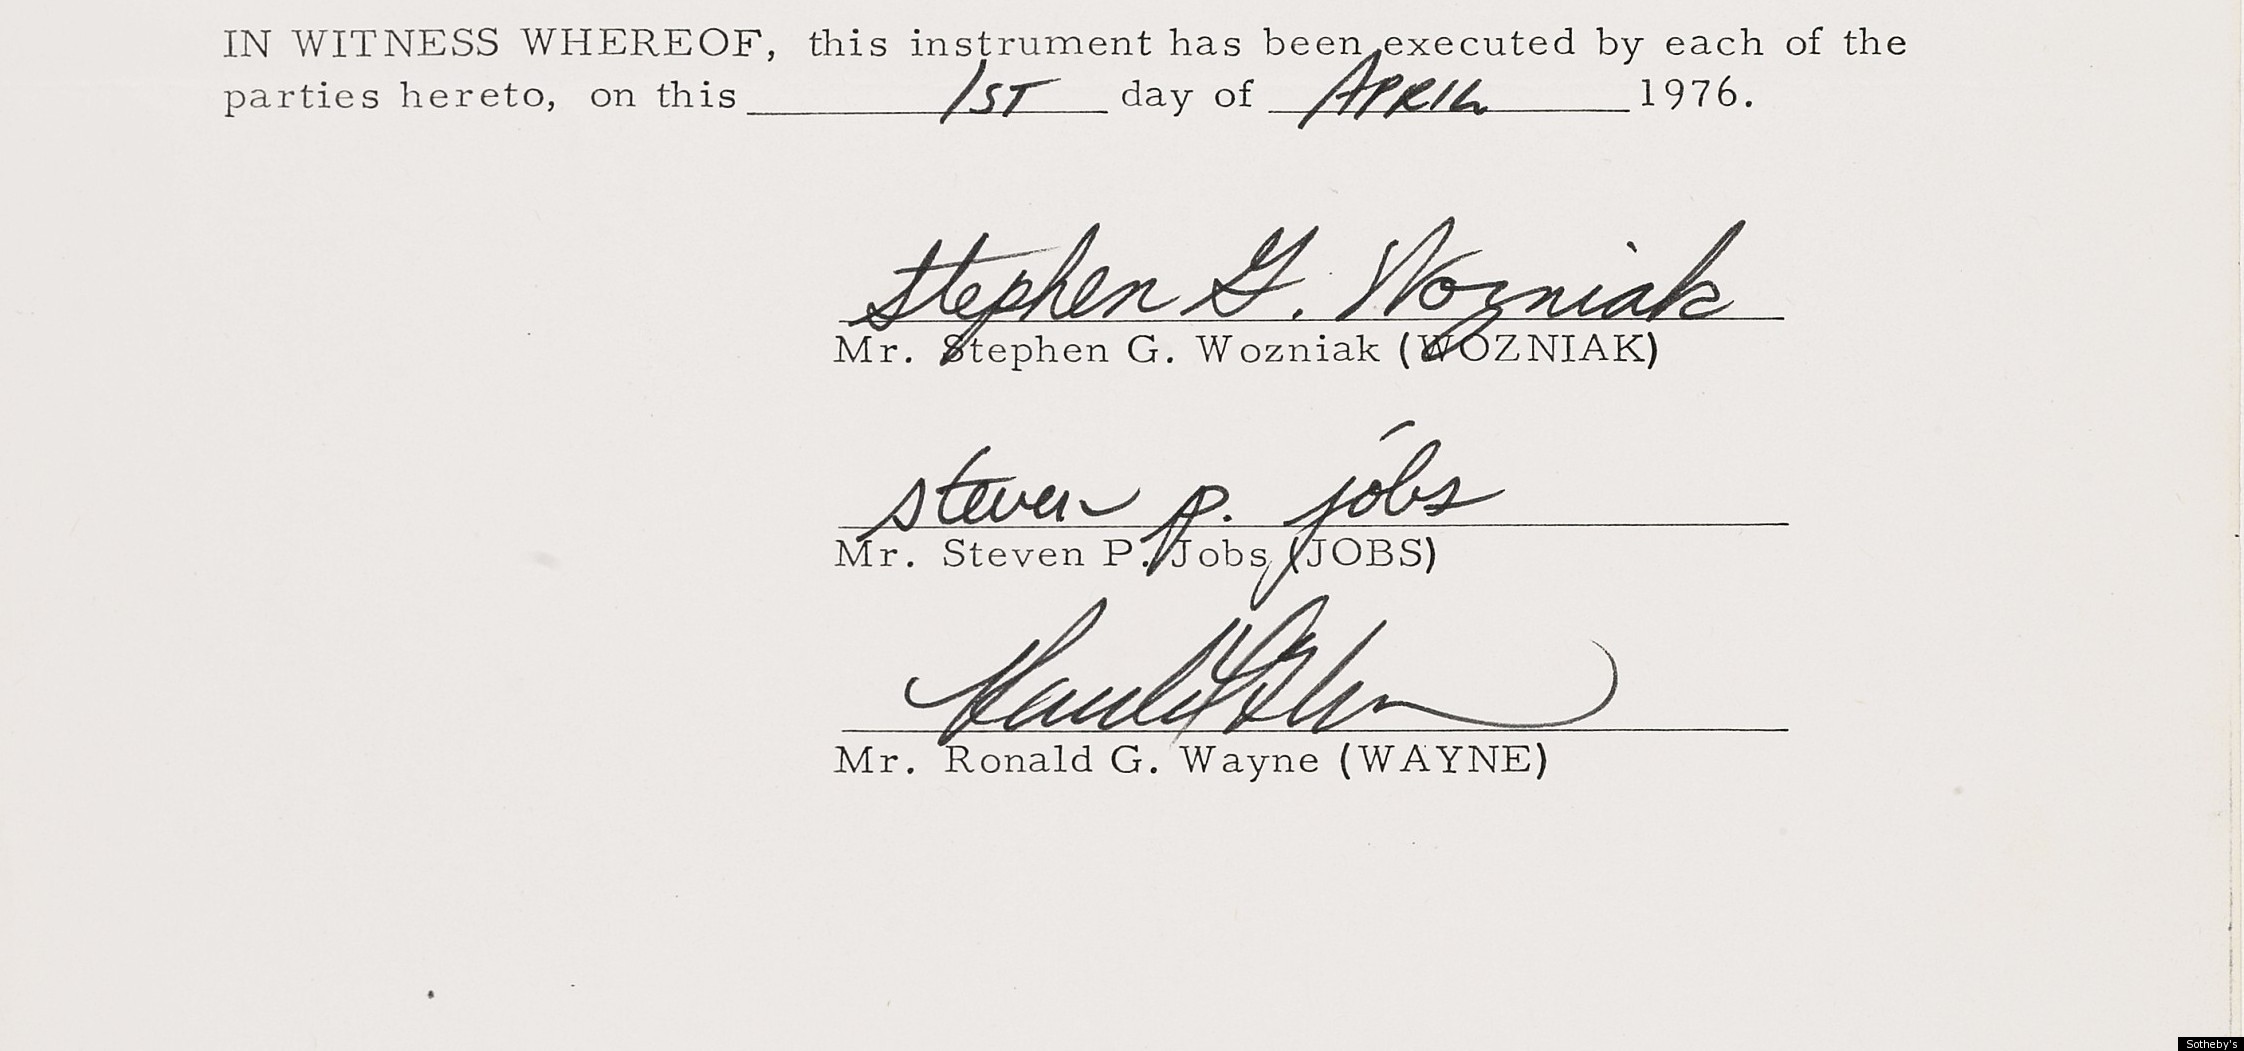 IN WITNESS WHEREOF, this instrument has been executed by each of the
parties hereto, on this 1ST day of APRIL 1976.
Stephen G. Wozniak
Mr. Stephen G. Wozniak (WOZNIAK)
steven p. jobs
Mr. Steven P. Jobs (JOBS)
Mr. Ronald G. Wayne (WAYNE)
Sotheby's